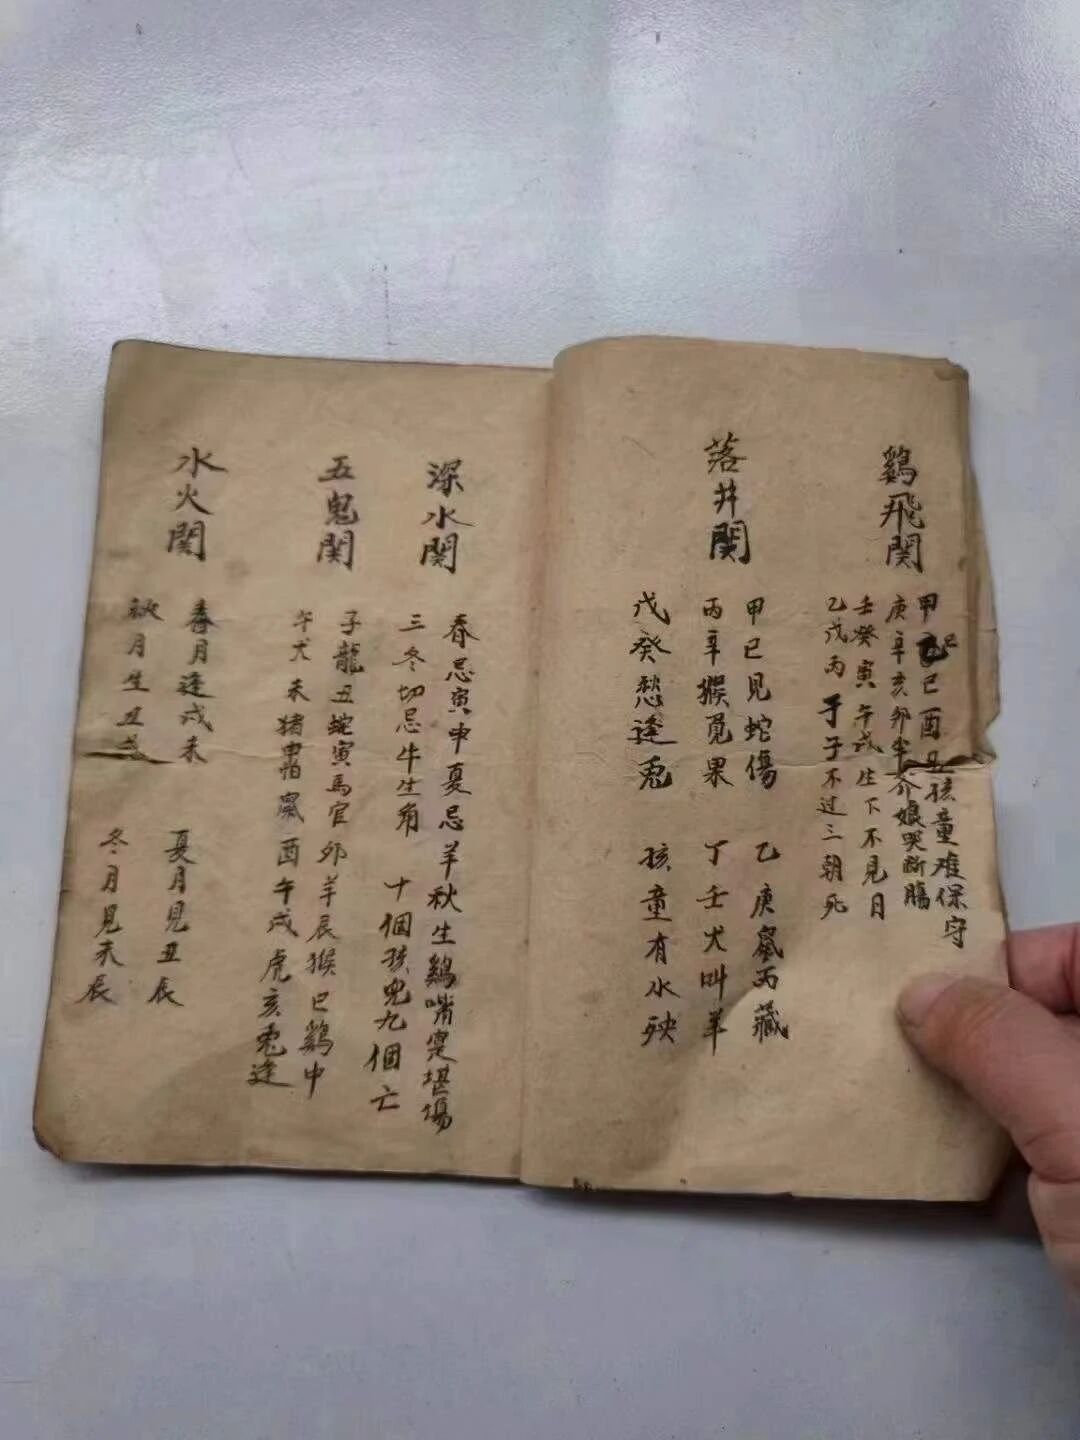 鷄飛関
甲己巳酉丑孩童难保守
庚辛亥卯半介娘哭断腸
壬癸寅午戌生下不見日
乙戊丙子不过三朝死
落井関
甲已見蛇傷 乙庚鼠丙藏
丙辛猴覓果 丁壬犬叫羊
戊癸愁逢兎 孩童有水殃
深水関
春忌寅申夏忌羊秋生鷄嘴寔堪傷
三冬切忌牛生角 十個孩兒九個亡
五鬼関
子龍丑蛇寅馬官卯羊辰猴巳鷄中
午犬未猪申怕鼠酉午戌虎亥兎逢
水火関
春月逢戌未 夏月見丑辰
秋月生丑戌 冬月見未辰